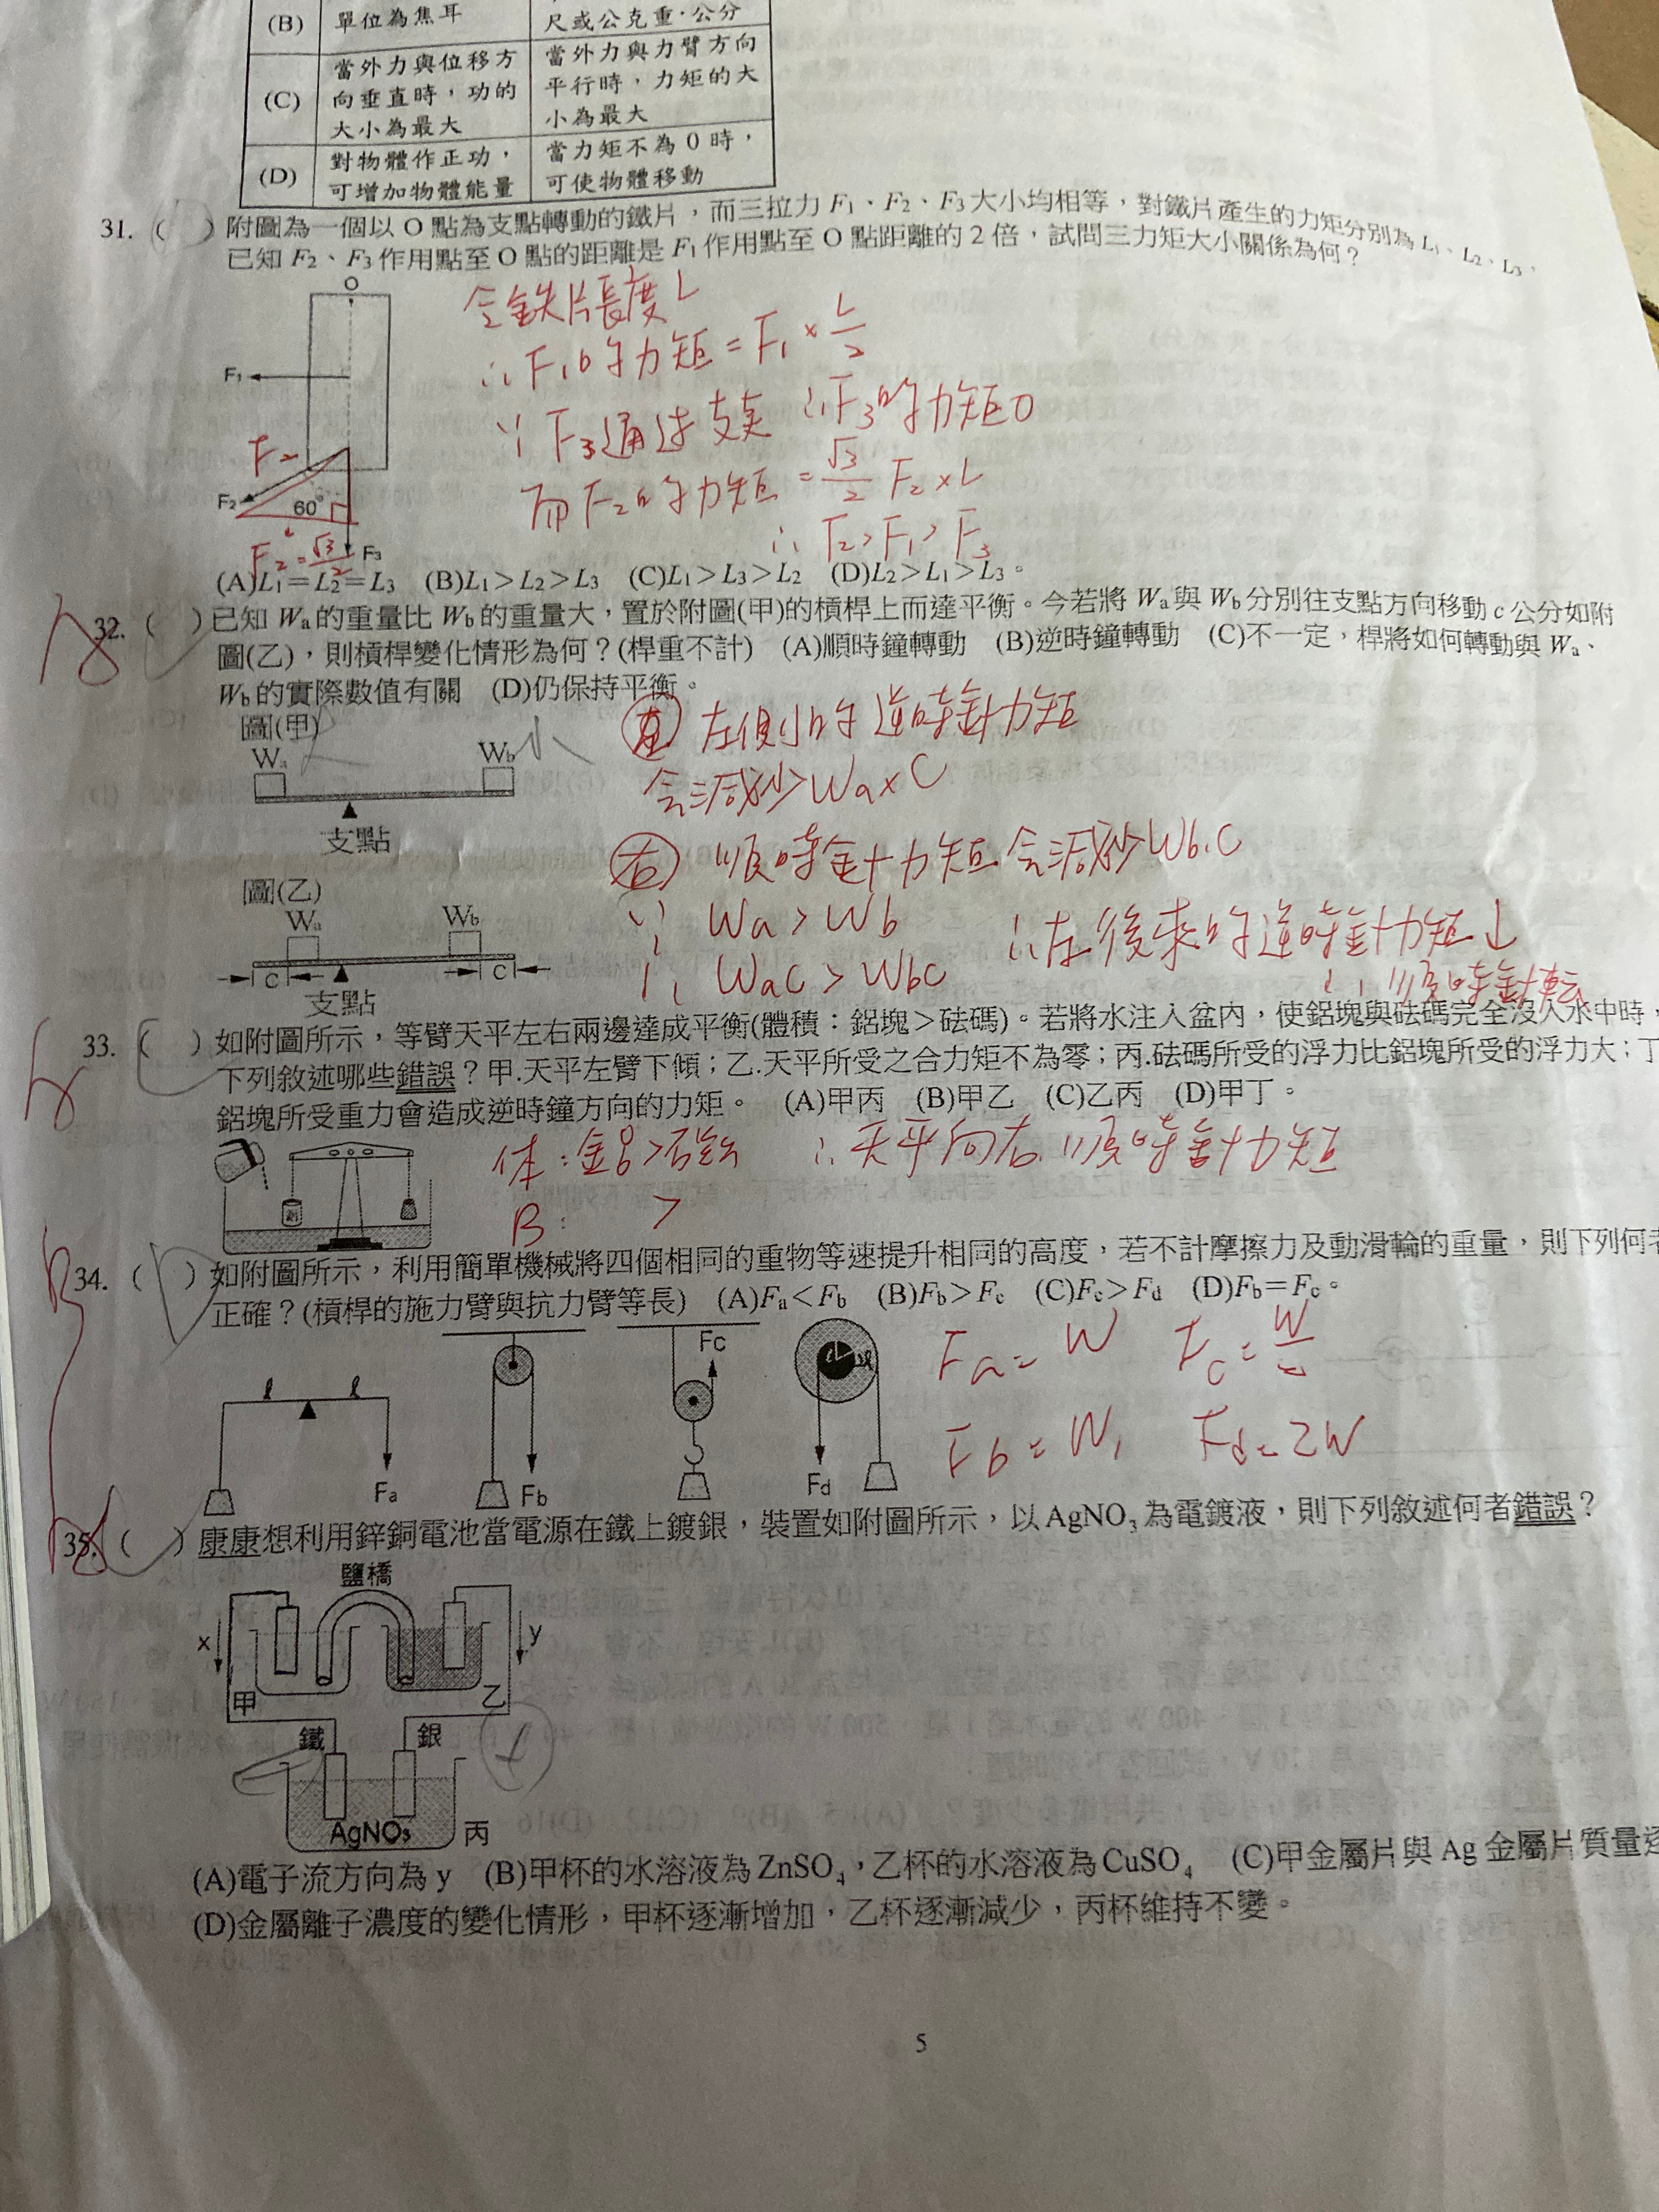 (B) 單位為焦耳 尺或公克重·公分
(C) 當外力與位移方向垂直時,功的大小為最大 當外力與力臂方向平行時,力矩的大小為最大
(D) 對物體作正功,可增加物體能量 當力矩不為 0 時,可使物體移動
31. ( D )附圖為一個以 O 點為支點轉動的鐵片,而三拉力 F₁、F₂、F₃大小均相等,對鐵片產生的力矩分別為 L₁、L₂、L₃,
已知 F₂、F₃作用點至 O 點的距離是 F₁作用點至 O 點距離的 2 倍,試問三力矩大小關係為何?
O
F₁
F₂
F₂
60°
F₃
F₂ = √3/2
令鉄片長度 L
∴ F₁的力矩 = F₁ × L/2
∵ F₃通過支點 ∴ F₃的力矩0
而 F₂的力矩 = √3/2 F₂ × L
∴ F₂ > F₁ > F₃
(A)L₁=L₂=L₃ (B)L₁>L₂>L₃ (C)L₁>L₃>L₂ (D)L₂>L₁>L₃。
32. ( )已知 Wₐ的重量比 W_b的重量大,置於附圖(甲)的槓桿上而達平衡。今若將 Wₐ與 W_b分別往支點方向移動 c 公分如附
圖(乙),則槓桿變化情形為何?(桿重不計) (A)順時鐘轉動 (B)逆時鐘轉動 (C)不一定,桿將如何轉動與 Wₐ、
W_b的實際數值有關 (D)仍保持平衡。
圖(甲)
Wₐ 大 W_b 小
支點
圖(乙)
Wₐ W_b
c c
支點
左 左側的逆時針力矩
會減少 Wa×C
右 順時針力矩會減少Wb.C
∵ Wa > Wb ∴ 左後來的逆時針力矩↓
∴ WaC > WbC ∴ 順時針転
33. ( )如附圖所示,等臂天平左右兩邊達成平衡(體積:鋁塊>砝碼)。若將水注入盆內,使鋁塊與砝碼完全沒入水中時,
下列敘述哪些錯誤?甲.天平左臂下傾;乙.天平所受之合力矩不為零;丙.砝碼所受的浮力比鋁塊所受的浮力大;丁
鋁塊所受重力會造成逆時鐘方向的力矩。 (A)甲丙 (B)甲乙 (C)乙丙 (D)甲丁。
鋁
体:鋁>砝 ∴ 天平向右 順時針力矩
B: >
34. ( D )如附圖所示,利用簡單機械將四個相同的重物等速提升相同的高度,若不計摩擦力及動滑輪的重量,則下列何者
正確?(槓桿的施力臂與抗力臂等長) (A)Fₐ<F_b (B)F_b>F_c (C)F_c>F_d (D)F_b=F_c。
ℓ ℓ
Fa
Fb
Fc
Fd
Fa = W Fc = W/2
Fb = W, Fd = 2W
35. ( )康康想利用鋅銅電池當電源在鐵上鍍銀,裝置如附圖所示,以 AgNO₃為電鍍液,則下列敘述何者錯誤?
鹽橋
x y
甲 乙
鐵 銀
AgNO₃ 丙
(A)電子流方向為 y (B)甲杯的水溶液為 ZnSO₄,乙杯的水溶液為 CuSO₄ (C)甲金屬片與 Ag 金屬片質量逐
(D)金屬離子濃度的變化情形,甲杯逐漸增加,乙杯逐漸減少,丙杯維持不變。
5